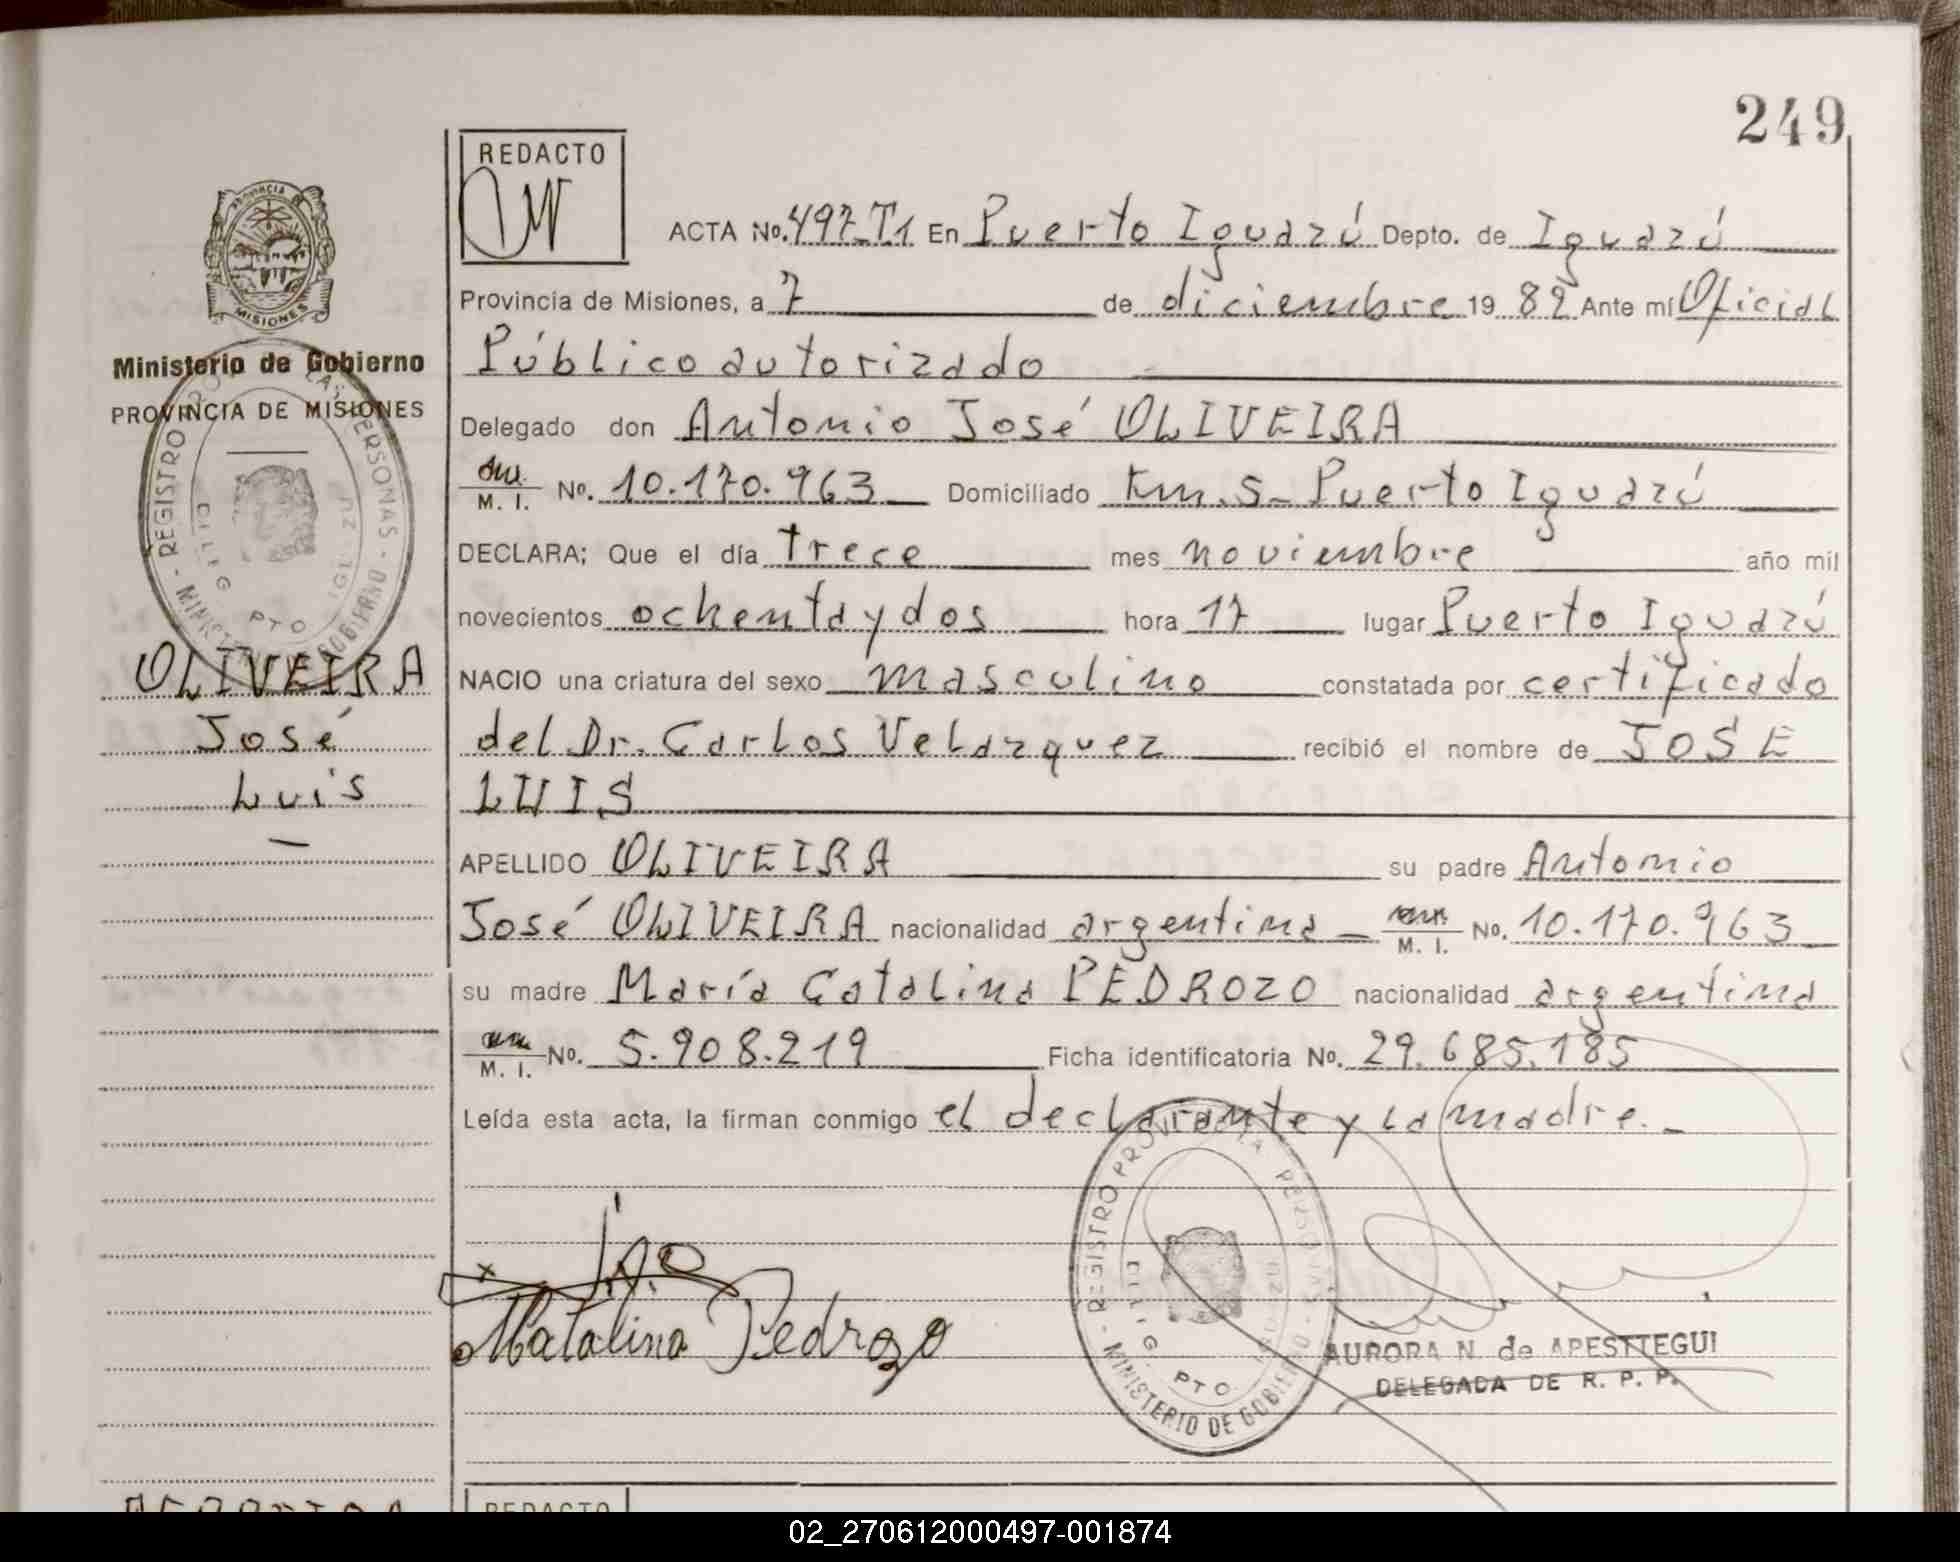 249
REDACTO
ACTA No. 497-T1 En Puerto Iguazú Depto. de Iguazú
Provincia de Misiones, a 7 de diciembre 1982 Ante mí Oficial
Público autorizado
Delegado don Antonio José OLIVEIRA
M. I. No. 10.170.963 Domiciliado Km. 5- Puerto Iguazú
DECLARA; Que el día trece mes noviembre año mil
novecientos ochenta y dos hora 17 lugar Puerto Iguazú
NACIO una criatura del sexo masculino constatada por certificado
del Dr. Carlos Velazquez recibió el nombre de JOSE
LUIS
APELLIDO OLIVEIRA su padre Antonio
José OLIVEIRA nacionalidad argentina - M. I. No. 10.170.963
su madre María Catalina PEDROZO nacionalidad argentina
M. I. No. 5.908.219 Ficha identificatoria No. 29.685.185
Leída esta acta, la firman conmigo el declarante y la madre.-
PROVINCIA
MISIONES
Ministerio de Gobierno
PROVINCIA DE MISIONES
REGISTRO PERSONAS - MINISTERIO GOBIERNO
PTO
OLIVEIRA
José
Luis
Catalina Pedrozo
REGISTRO PERSONAS - MINISTERIO DE GOBIERNO
PTO.
AURORA N. de APESTTEGUI
DELEGADA DE R. P. P.
REDACTO
02_270612000497-001874